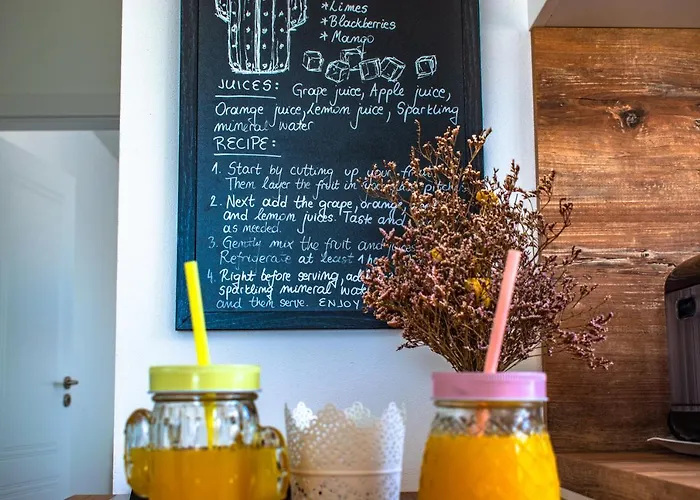 *Limes
*Blackberries
*Mango
JUICES: Grape juice, Apple juice,
Orange juice, Lemon juice, Sparkling
mineral water
RECIPE:
1. Start by cutting up your fruit.
Them layer the fruit in
2. Next add the grape, orange,
and lemon juices. Taste and
as needed.
3. Gently mix the fruit and juices
Refrigerate at least 1
4. Right before serving, add
sparkling mineral water
and them serve. ENJOY